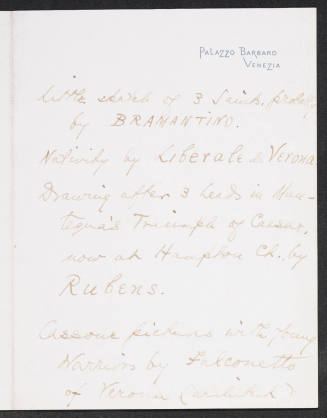 PALAZZO BARBARO
VENEZIA
Little sketch of 3 Saints, probably
by BRAMANTINO.
Nativity by Liberale di Verona
Drawing after 3 heads in Man-
tegna's Triumph of Caesar,
now at Hampton Ct., by
Rubens.
Cassone pictures with young
Warriors by Falconetto
of Verona (architect)